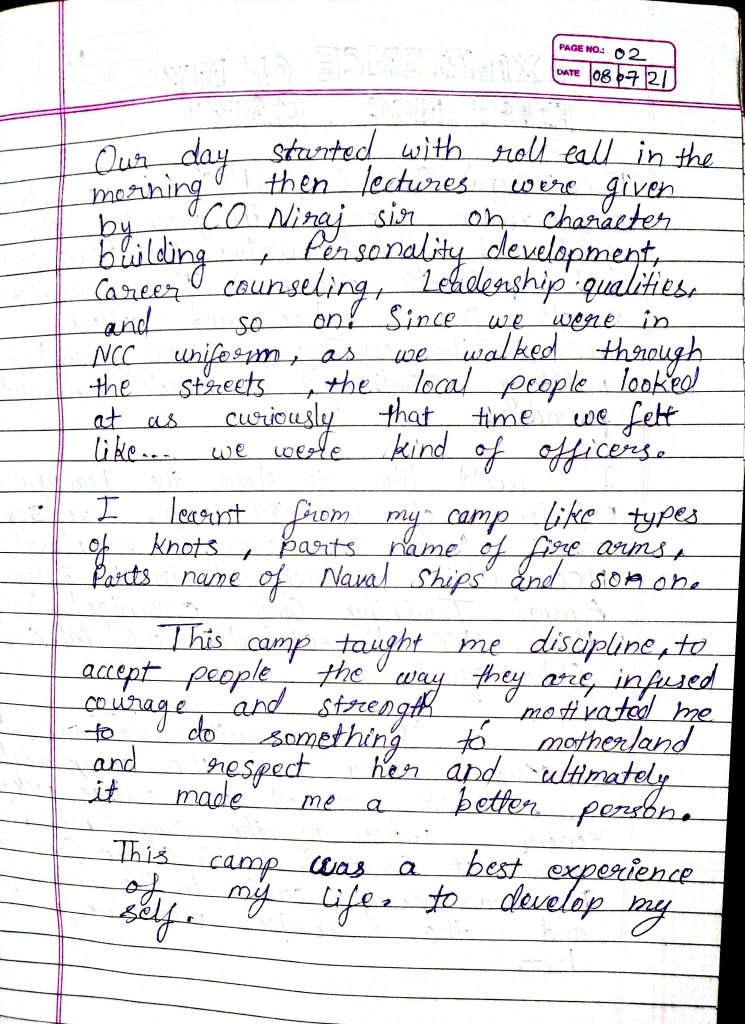 PAGE NO.: 02
DATE 08 07 21
Our day started with roll call in the
morning then lectures were given
by CO Niraj sir on character
building , Personality development,
Career counseling, Leadership qualities,
and so on. Since we were in
NCC uniform, as we walked through
the streets , the local people looked
at us curiously that time we felt
like... we were kind of officers.
I learnt from my camp like types
of knots , parts name of fire arms,
Parts name of Naval Ships and son on.
This camp taught me discipline, to
accept people the way they are, infused
courage and strength , motivated me
to do something to motherland
and respect her and ultimately
it made me a better person.
This camp was a best experience
of my life. to develop my
self.